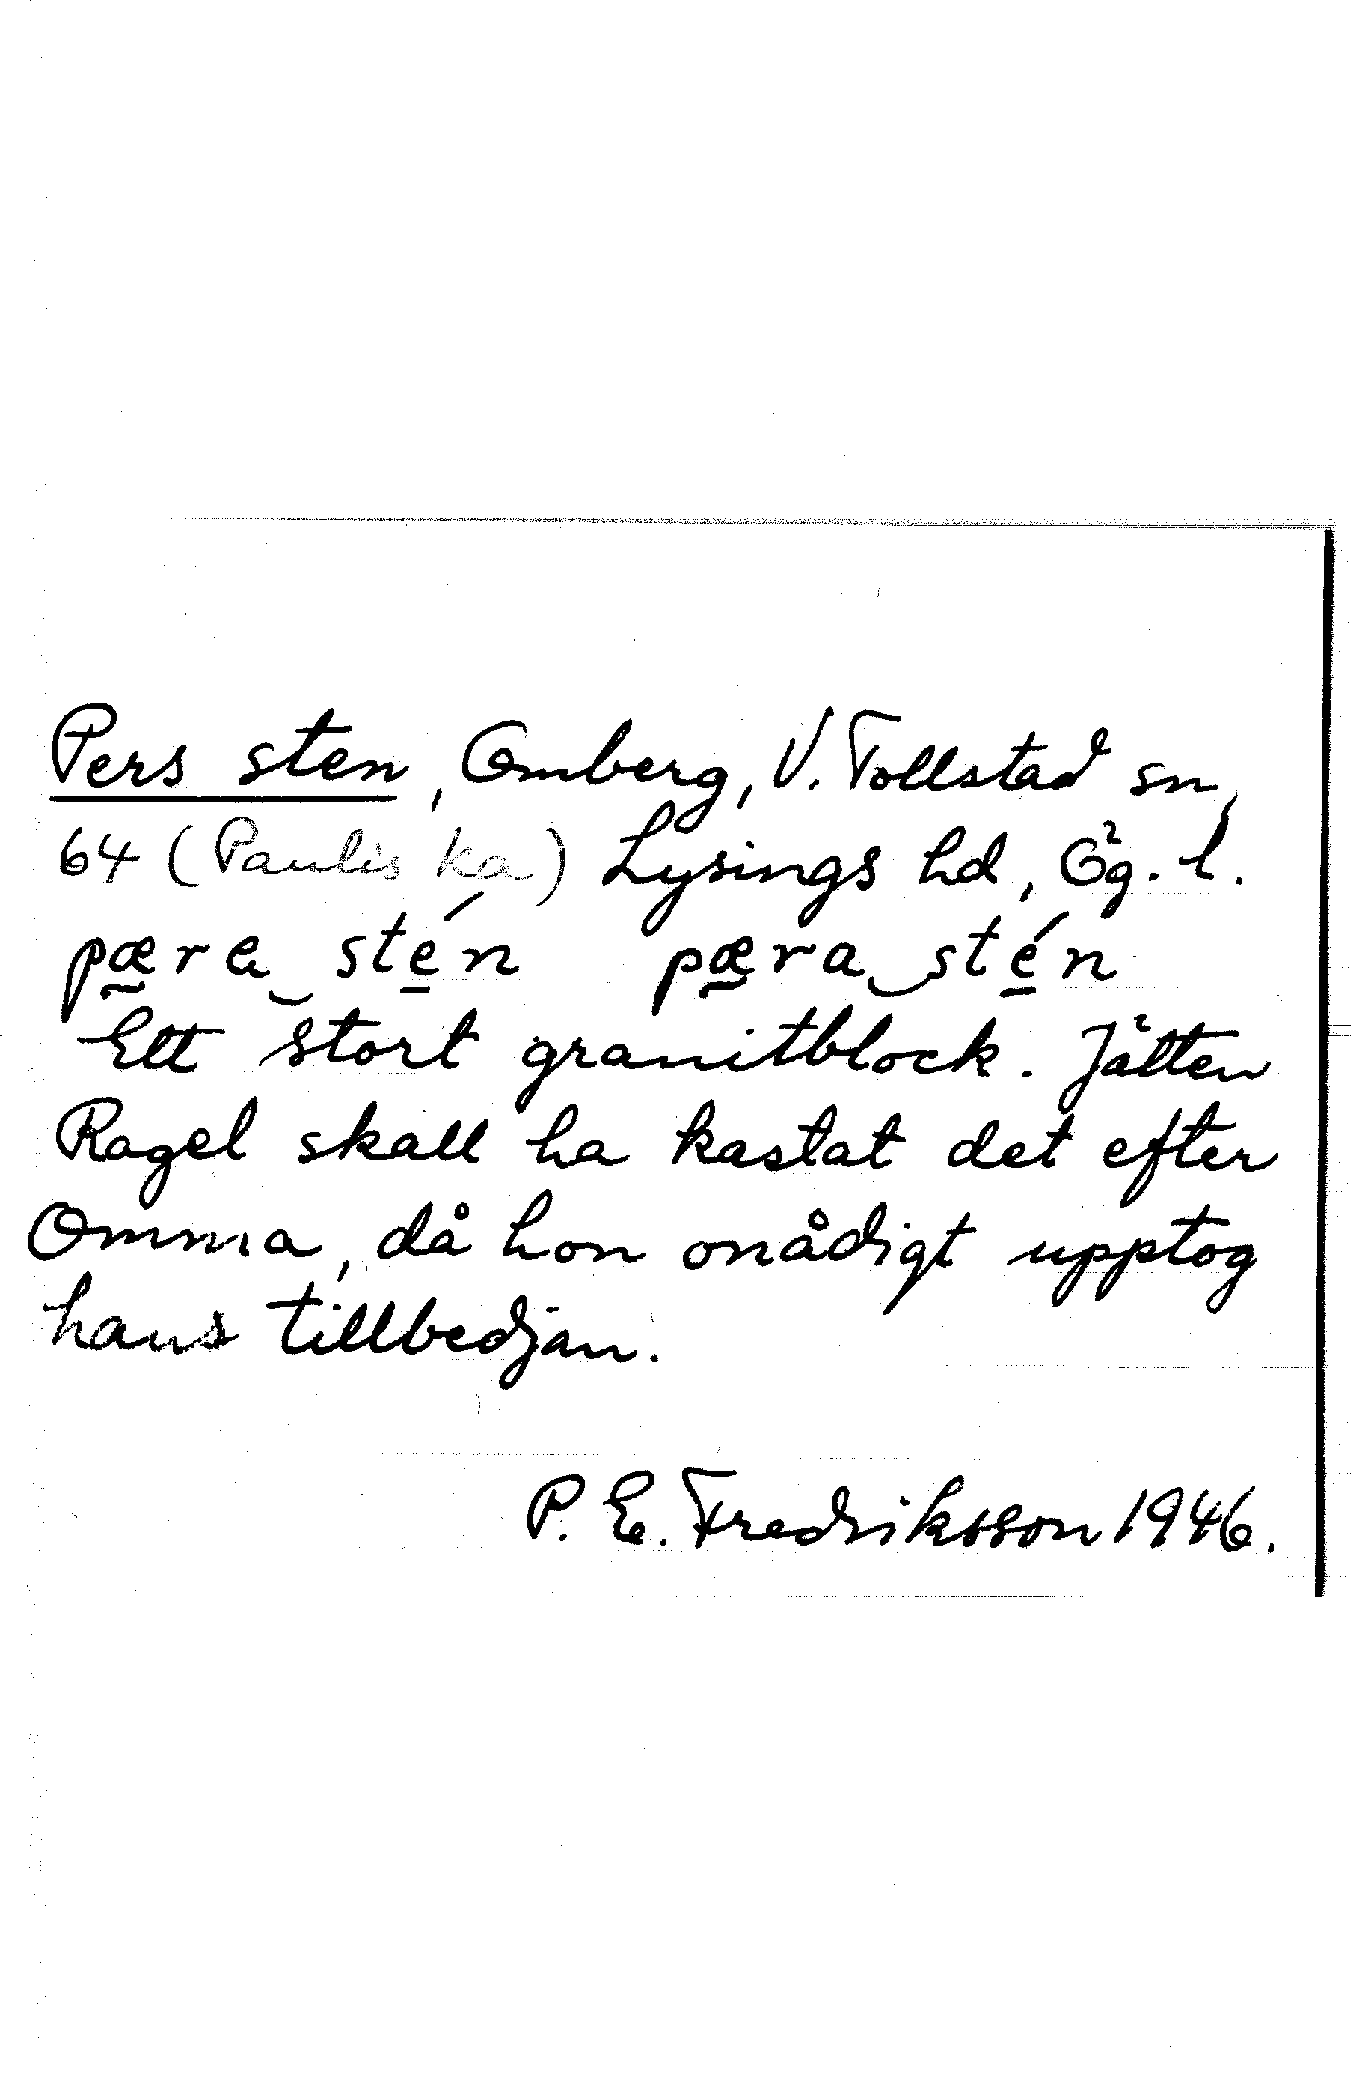 Pers sten, Omberg, V. Tollstad sn,
64 (Paulis ka) Lysings hd, Ög. l.
pæra‿stén pæra‿stén
Ett stort granitblock. Jätten
Ragel skall ha kastat det efter
Omma, då hon onådigt upptog
hans tillbedjan.
P. E. Fredriksson 1946.